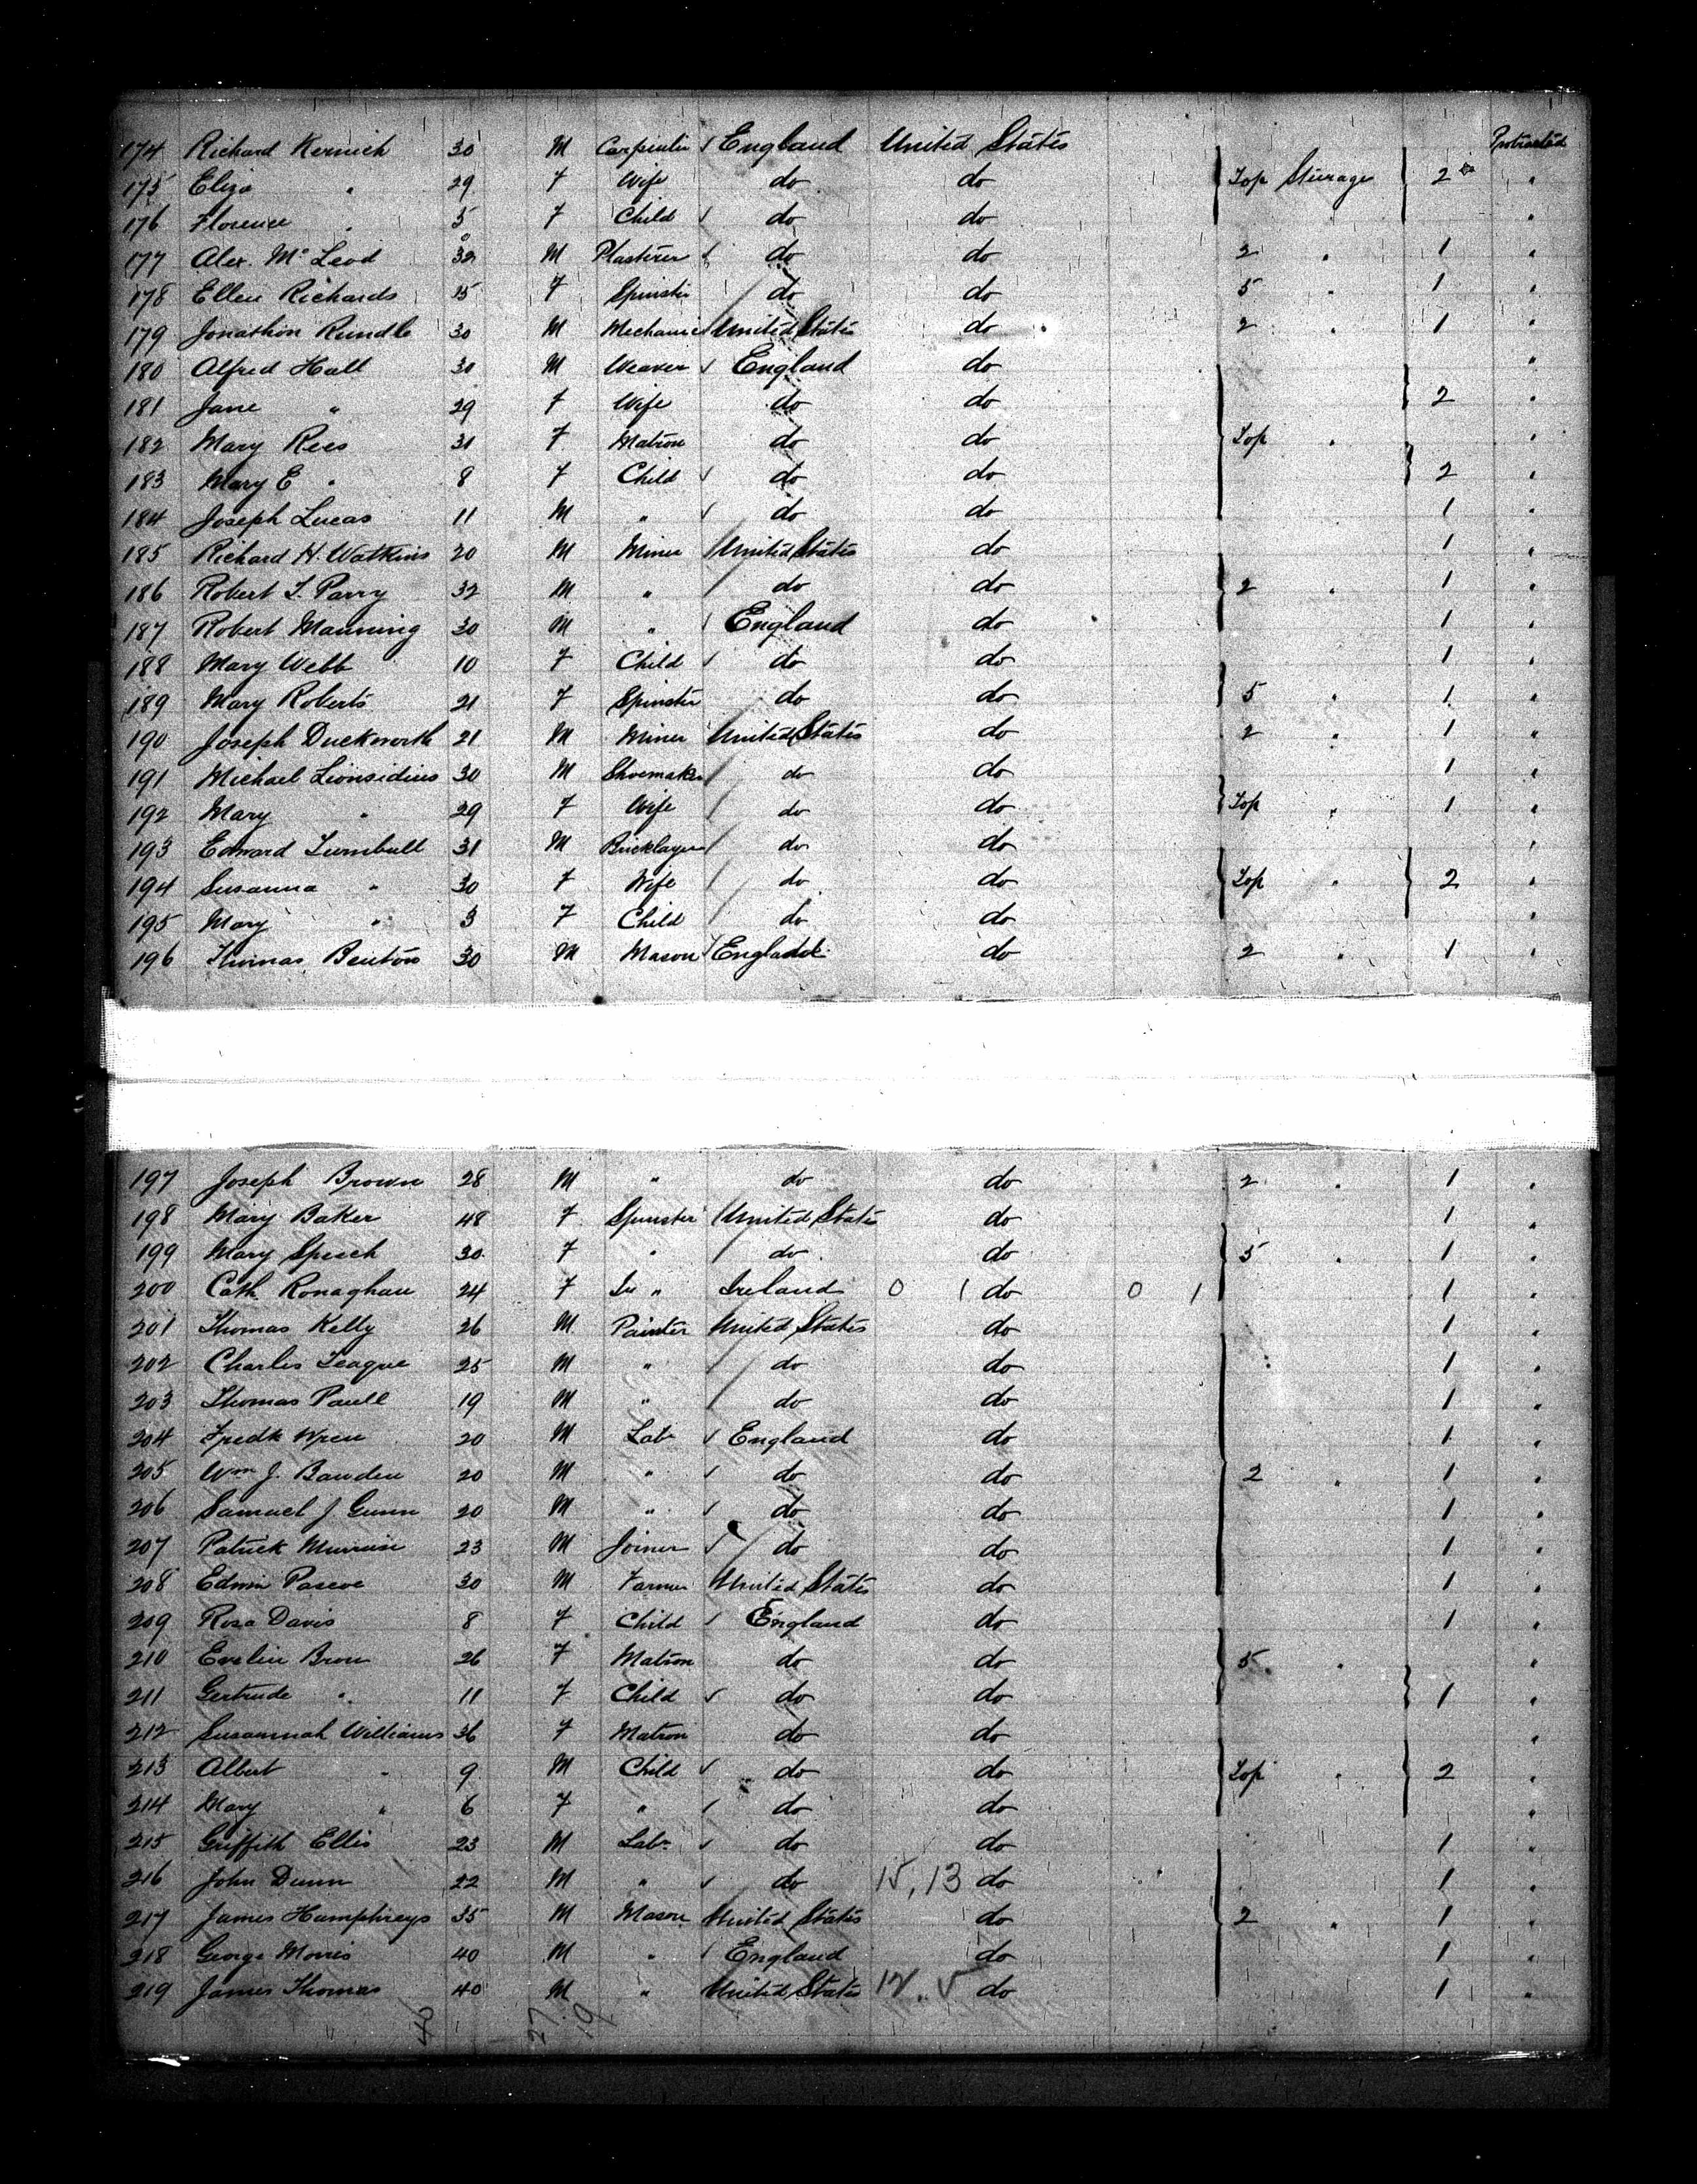 174 Richard Kernich 30 M Carpenter England United States Protracted
175 Eliza " 29 F Wife do do Top Steerage 2 "
176 Florence " 5 F Child do do "
177 Alex. Mc Leod 32 M Plasterer do do 2 " 1 "
178 Ellen Richards 15 F Spinster do do 5 " 1 "
179 Jonathon Rundle 30 M Mechanic United States do 2 " 1 "
180 Alfred Hall 30 M Weaver England do "
181 Jane " 29 F Wife do do 2 "
182 Mary Rees 31 F Matron do do Top " "
183 Mary E " 8 F Child do do 2 "
184 Joseph Lucas 11 M " do do 1 "
185 Richard H. Watkins 20 M Miner United States do 1 "
186 Robert T. Parry 32 M " do do 2 " 1 "
187 Robert Manning 30 M " England do 1 "
188 Mary Webb 10 F Child do do 1 "
189 Mary Roberts 21 F Spinster do do 5 " 1 "
190 Joseph Duckworth 21 M Miner United States do 2 " 1 "
191 Michael 30 M Shoemaker do do 1 "
192 Mary " 29 F Wife do do Top " 1 "
193 Edward Turnbull 31 M Bricklayer do do "
194 Susanna " 30 F Wife do do Top " 2 "
195 Mary " 3 F Child do do "
196 Thomas Benton 30 M Mason England do 2 " 1 "
197 Joseph Brown 28 M " do do 2 " 1 "
198 Mary Baker 48 F Spinster United States do 1 "
199 Mary Speech 30 F " do do 5 " 1 "
200 Cath Ronaghan 24 F " Ireland 0 1 do 0 1 1 "
201 Thomas Kelly 26 M Painter United States do 1 "
202 Charles Teague 25 M " do do 1 "
203 Thomas Paull 19 M " do do 1 "
204 Fredk Wren 20 M Labr England do 1 "
205 Wm J. Bawden 20 M " do do 2 " 1 "
206 Samuel J Gunn 20 M " do do 1 "
207 Patrick 23 M Joiner do do 1 "
208 Edwin Pascoe 30 M Farmer United States do 1 "
209 Rosa Davis 8 F Child England do 1 "
210 Evelin Brow 26 F Matron do do 5 " "
211 Gertrude " 11 F Child do do 1 "
212 Susannah Williams 36 F Matron do do "
213 Albert " 9 M Child do do Top " 2 "
214 Mary " 6 F " do do "
215 Griffith Ellis 23 M Labr do do 1 "
216 John Dunn 22 M " do 15, 13 do 1 "
217 James Humphreys 35 M Mason United States do 2 " 1 "
218 George Morris 40 M " England do 1 "
219 James Thomas 40 M " United States do 1 "
46 27 19